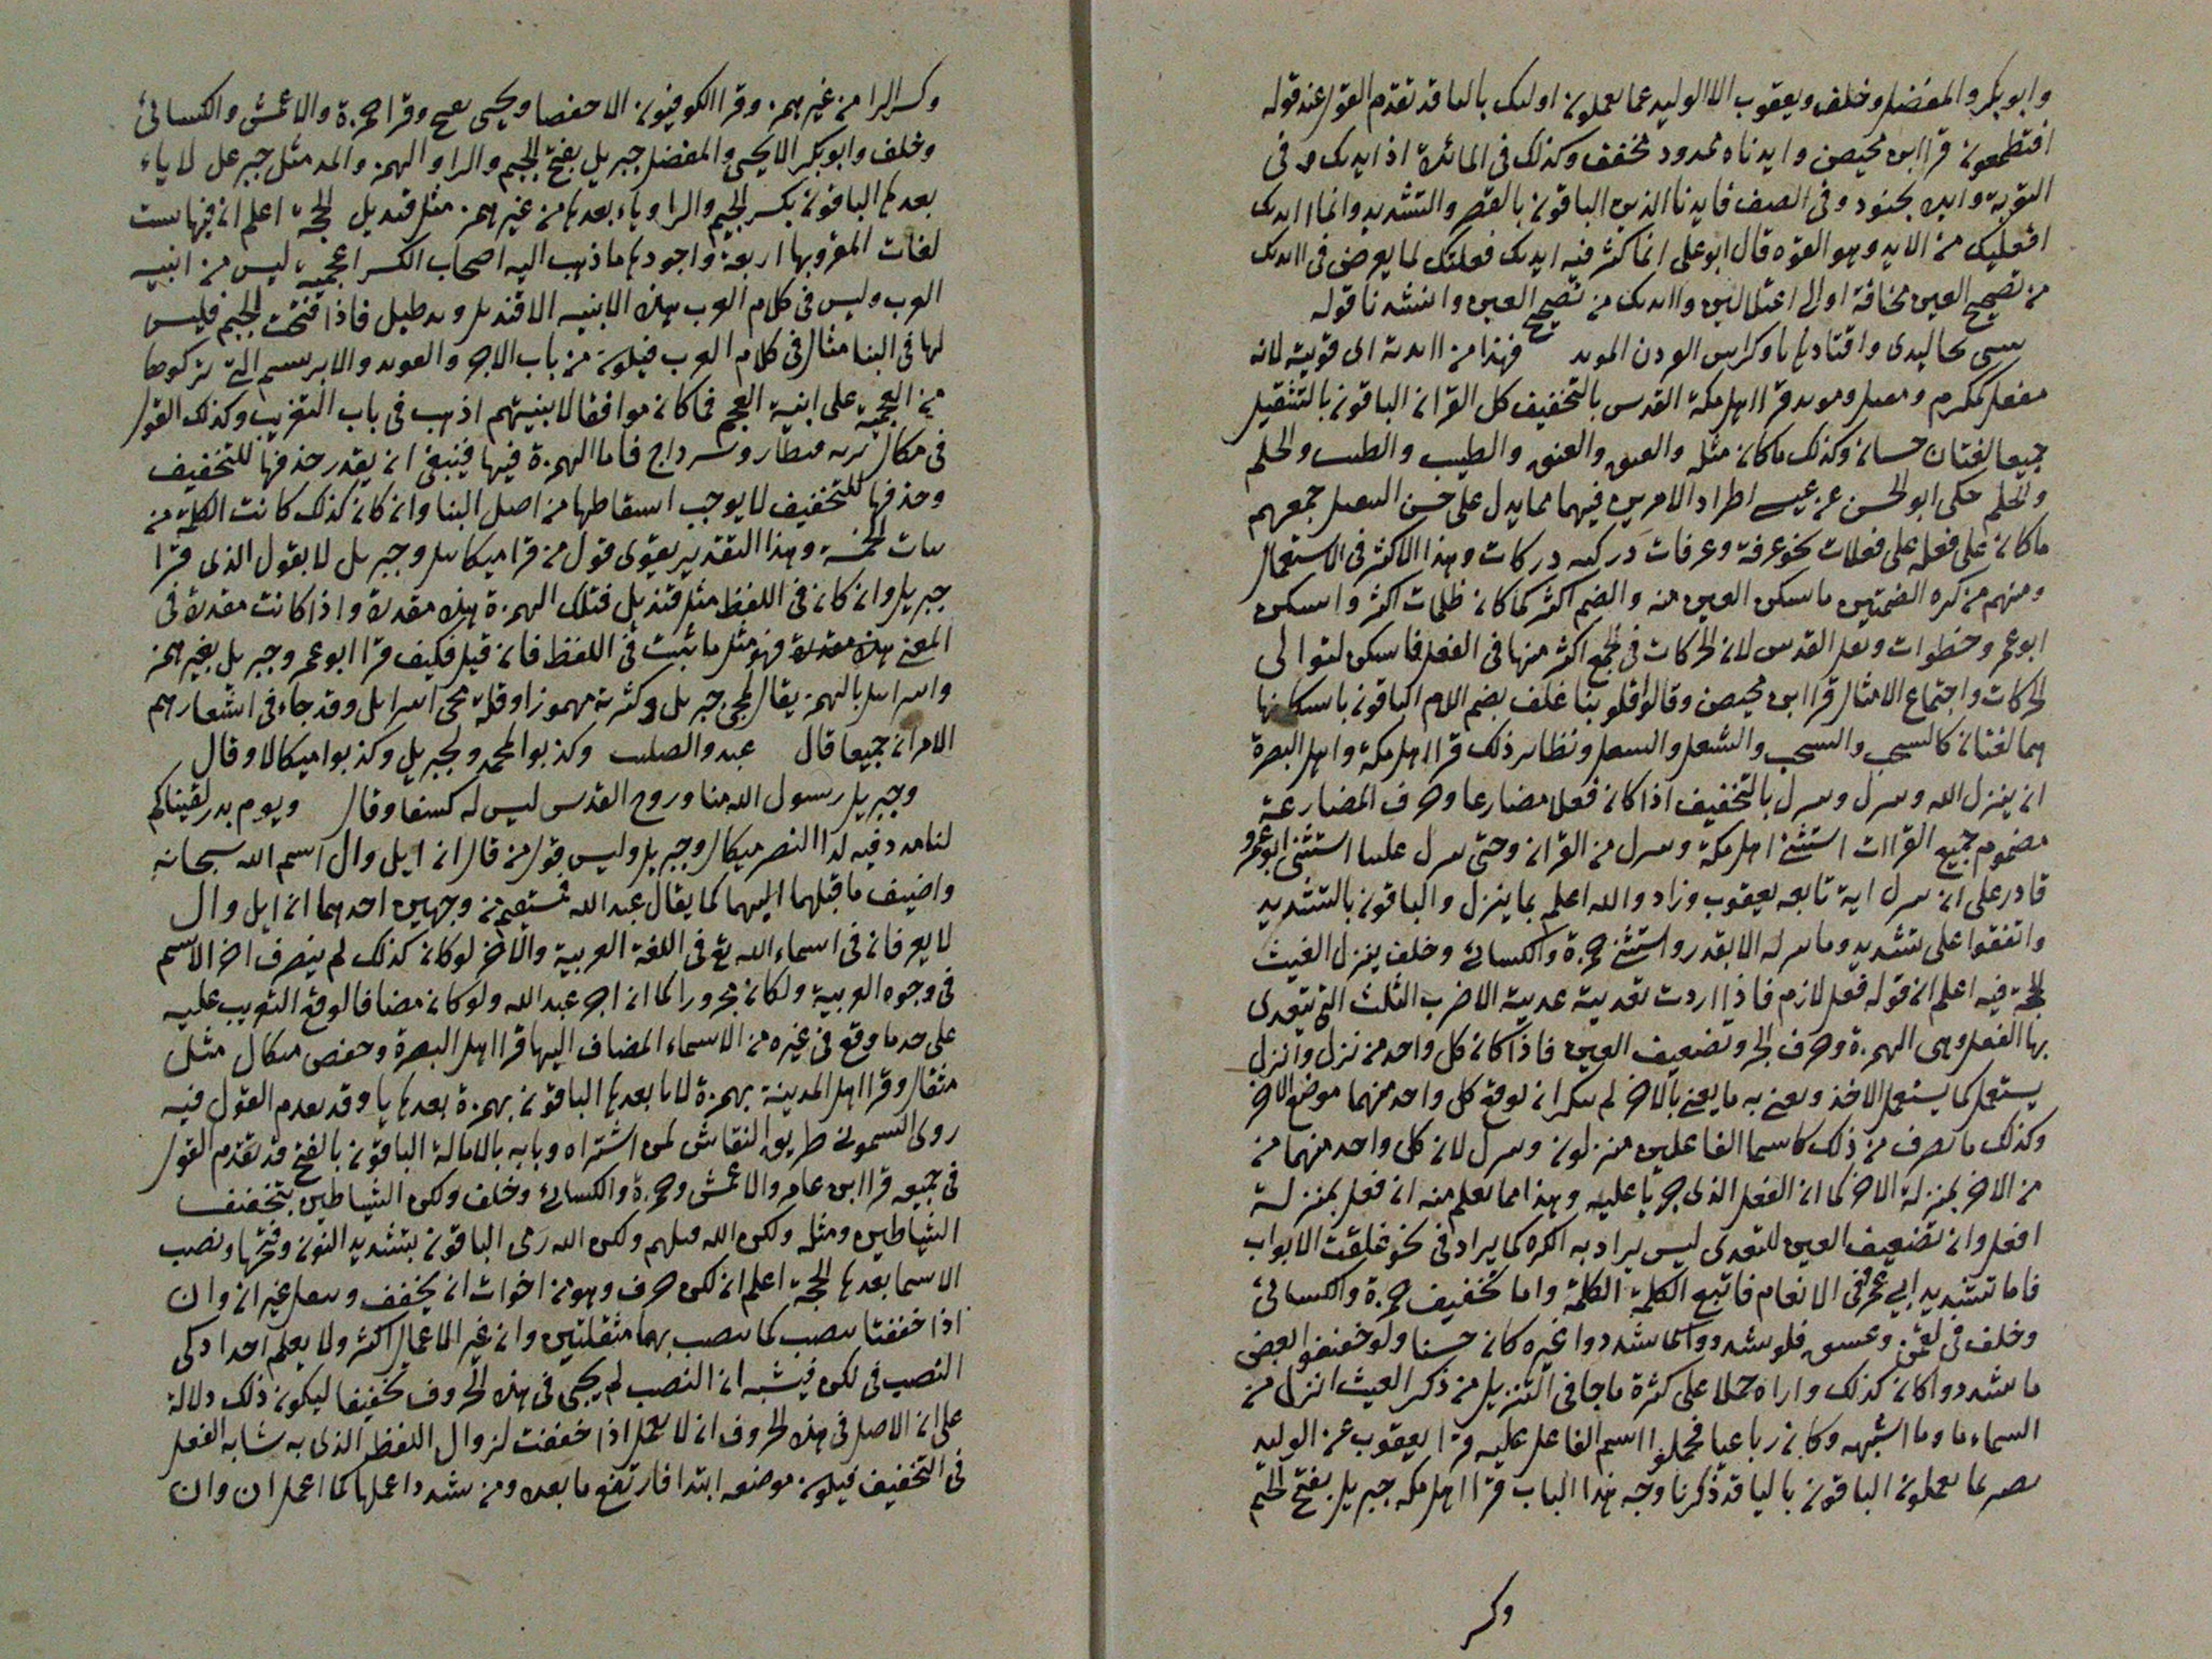 وابو بكر والمفضل وخلف ويعقوب الا الوليد عما يعملون اولىك بالىا قد تقدم القول عند قوله
افتطمعون قرا ابن محيصن وايدناه ممدود مخفف وكذلك فى المائدة اذ ايدىك و فى
التوبة وايده بجنود وفى الصف فايدنا الذين الباقون بالقصر والتشديد وانما اايدىك
افعلىك من الايد وهو القوه قال ابو على انما كثر فيه ايدىك فعلتك لما يعرض فى اايدىك
من تصحيح العين مخافة اوالى اعتلالين واايدىك من تصحيح العين وانشدنا قوله
واقتادها فهذا من اى قوية لانه
مفعل كمكرم قرا اهل مكة القدس بالتخفيف كل القران الباقون بالتثقيل
جميعا لغتان حسان وكذلك ما كان مثله والعىق والعنق والطيب والطىب والحلم
والحلم حكى ابو الحسن عن عيسى اطراد الامرين فيهما مما يدل على حسن جمعهم
ما كان على فعله على فعلات نحو غرفة وغرفات دركىه دركات وهذا الاكثر فى الاستعمال
ومنهم من كره الضمتين ما سكن العين منه والضم اكثر كما كان ظلمات اكثر واسكن
ابو عمرو خطوات القدس لان الحركات فى الجمع اكثر منها فى الفعل فاسكن لتوالى
الحركات واجتماع الامثال قرا ابن محيصن وقالوا قلوبنا غلف بضم اللام الباقون باسكانها
هما لغتان كالسحب والسحب ونظاىر ذلك قرا اهل مكة واهل البصرة
ان ينزل الله وىىزل وىىزل بالتخفيف اذا كان فعلا مضارعا وحرف المضارعة
مضموم جميع القراات استثنى اهل مكة وىىزل من القران وحتى ىىزل علىىا استثنى ابو عمرو
قادر على ان ىىزل اية تابعه يعقوب وزاد والله اعلم بما ينزل والباقون بالتشديد
واتفقوا على تشديد وما ىىزله الا بقدر واستثنى حمزة والكسائى وخلف ينزل الغيث
الحجة فيه اعلم ان قوله فعل لازم فاذا اردت تعديىة عديىة الاضرب الثلث التى يتعدى
بها الفعل وهى الهمزة وحرف الجر وتضعيف العين فاذا كان كل واحد من نزل وانزل
يستعمل كما يستعمل الاخر وىعنى به ما يعنى بالاخر لم ىىكر ان ىوقع كل واحد منهما موضع الاخر
وكذلك ما تصرف من ذلك كاسما الفاعلين منزلون وىىزل لان كل واحد منهما من
من الاخر بمنزلة الاخر كما ان الفعل الذى جريا عليه وهذا مما ىعلم منه ان فعل بمنزلة
افعل وان تضعيف العين للتعدى ليس يراد به الكره كما يراد فى نحو غلقت الابواب
فاما تشديد ابى عمرو فى الانعام فاتبع الكلمة الكلمة واما تخفيف حمزة والكسائى
وخلف فى لقمن وعسق فلو شددوا كما شددوا غيره كان حسنا ولو خففوا بعض
ما شددوا كان كذلك واراه حملا على كثرة ما جا فى التنزيل من ذكر الغيث انزل من
السماء ما وما اشبهه وكان رباعيا فحملوا اسم الفاعل عليه قرا يعقوب عن الوليد
ىصير بما ىعملون الباقون باليا قد ذكرنا وجه هذا الباب قرا اهل مكه جبريل بفتح الجيم
وكسر
وكسر الرا من غير همز وقرا الكوفيون الا حفصا ويحيى وقرا حمزة والاعمش والكسائى
وخلف وابو بكر الا يحيى والمفضل جبريل بفتح الجيم والرا والهمز والمد مثل جبرعل لا ياء
بعدها الباقون بكسر الجيم والرا وياء بعدها من غير همز مثل قنديل الحجة اعلم ان فيها ست
لغات المقرو بها اربعة واجودها ما ذهب اليه اصحاب الكسر اعجمىة ليس من ابنيه
العرب وليس فى كلام العرب هذه الابنيه الا قنديل وىرطيل فاذا فتحت الجيم فليس
لها فى البنا مثال فى كلام العرب فيكون من باب الاجر والابريسم التى تركوها
من العجمة على ابنية العجم فما كان موافقا لابنيتهم اذهب فى باب التعريب وكذلك القول
فى ميكال وسرداح فاما الهمزة فيها فينبغى ان يقدر حذفها للتخفيف
وحذفها للتخفيف لا يوجب اسقاطها من اصل البنا وان كان كذلك كانت الكلمة من
ىىات الخمسة وهذا التقدير يقوى قول من قرا ميكاىىل وجبرىىل لا بقول الذى قرا
جبريل وان كان فى اللفظ مثل قنديل فتلك الهمزة هذه مقدرة واذا كانت مقدرة فى
المعنى هذه مقدرة فهو مثل ما ثبت فى اللفظ فان قيل فكيف قرا ابو عمرو جبريل بغير همز
واسراىىل بالهمز يقال لمجى جبرىىل وكثرته مهموزا وقلة مجى اسراىىل وقد جاء فى اشعارهم
الامران جميعا قال عبدوا الصليب وكذبوا بمحمد وبجبريل وكذبوا ميكالا وقال
وجبريل رسول الله منا وروح القدس ليس له كىفا وقال ويوم بدر لقيناكم
لنا مدد فيه لدا النصر ميكال وجبريل وليس قول من قال ان ايل وال اسم الله سبحانه
واضيف ما قبلهما اليهما كما يقال عبد الله بمستقيم من وجهين احدهما ان ايل وال
لا يعرفان فى اسماء الله تع فى اللغة العربية والاخر لو كان كذلك لم ينصرف اخر الاسم
فى وجوه العربية ولكان مجرورا كما ان اخر عبد الله ولو كان مضافا لوقع التعريب عليه
على حد ما وقع فى غيره من الاسماء المضاف اليها قرا اهل البصرة وحفص مىكال مثل
مثقال وقرا اهل المدينة بهمزة لا يا بعدها الباقون بهمزة بعدها يا وقد ىقدم القول فيه
روى السمونى طريق النقاش لمن اشتراه وبابه بالامالة الباقون بالفتح قد تقدم القول
فى جميعه قرا ابن عامر والاعمش وحمزة والكسائى وخلف ولكن الشياطين بتخفيف
الشياطين ومثله ولكن الله قىلهم ولكن الله رمى الباقون بتشديد النون وفتحها ونصب
الاسما بعدها الحجة اعلم ان لكن حرف وهو من اخوات ان يخفف وىىقل غير ان وان
اذا خففتا ىىصب كما ىىصب بهما مثقلتين وان غير الاعمال اكثر ولا يعلم احدا حكى
النصب فى لكن فيشبه ان النصب لم يجى فى هذه الحروف تخفيفا ليكون ذلك دلالة
على ان الاصل فى هذه الحروف ان لا يعمل اذا خففت لزوال اللفظ الذى به شابه الفعل
فى التخفيف فيكون موضعه ابتدا فارتفع ما بعده ومن شدد اعملها كما اعمل ان وان